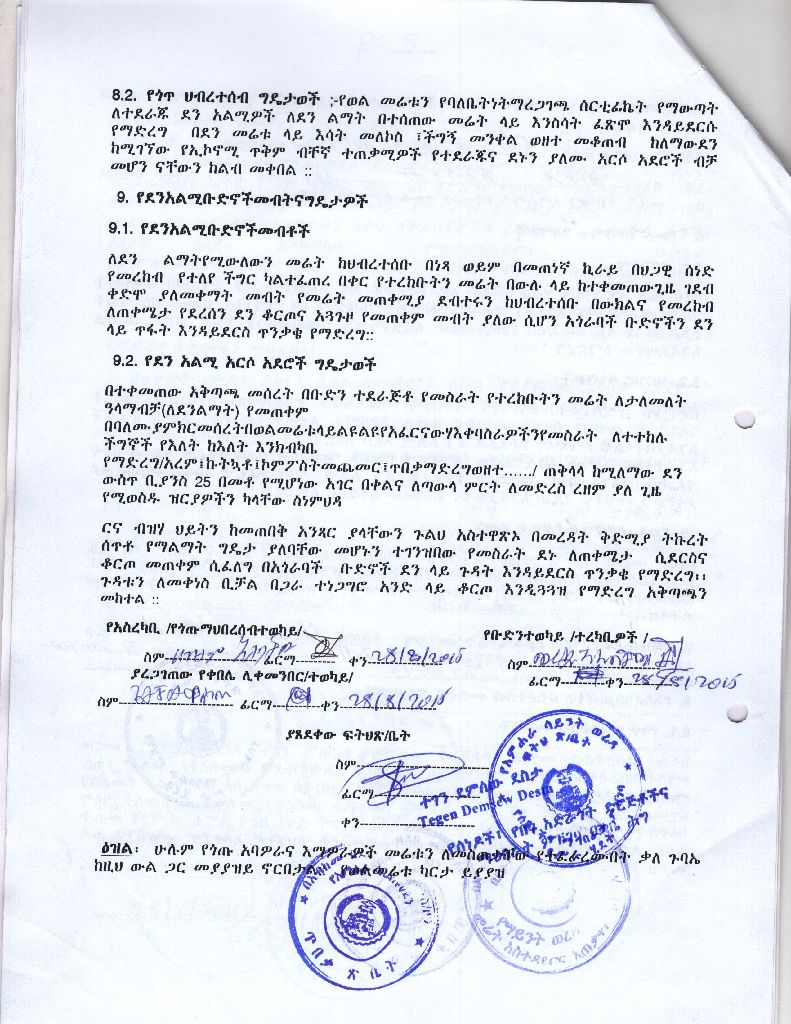 8.2. የጎጥ ህብረተሰብ ግዴታወች ፡-የወል መሬቱን የባለቤትነትማረጋገጫ ሰርቲፊኬት የማውጣት
ለተደራጁ ደን አልሚዎች ለደን ልማት በተሰጠው መሬት ላይ እንስሳት ፈጽሞ እንዳይደርሱ
የማድረግ በደን መሬቱ ላይ እሳት መለኮስ ፣ችግኝ መንቀል ወዘተ መቆጠብ ከለማውደን
ከሚገኘው የኢኮኖሚ ጥቅም ብቸኛ ተጠቃሚዎች የተደራጁና ደኑን ያለሙ አርሶ አደሮች ብቻ
መሆን ናቸውን ከልብ መቀበል ፡፡
9. የደንአልሚቡድኖችመብትናግዴታዎች
9.1. የደንአልሚቡድኖችመብቶች
ለደን ልማትየሚውለውን መሬት ከህብረተሰቡ በነጻ ወይም በመጠነኛ ኪራይ በህጋዊ ሰነድ
የመረከብ የተለየ ችግር ካልተፈጠረ በቀር የተረከቡትን መሬት በውሉ ላይ ከተቀመጠውጊዜ ገደብ
ቀድሞ ያለመቀማት መብት የመሬት መጠቀሚያ ደብተሩን ከህብረተሰቡ በውክልና የመረከብ
ለጠቀሜታ የደረሰን ደን ቆርጦና አጓጉዞ የመጠቀም መብት ያለው ሲሆን አጎራባች ቡድኖችን ደን
ላይ ጥፋት እንዳይደርስ ጥንቃቄ የማድረግ፡፡
9.2. የደን አልሚ አርሶ አደሮች ግዴታወች
በተቀመጠው አቅጣጫ መሰረት በቡድን ተደራጅቶ የመስራት የተረከቡትን መሬት ለታለመለት
ዓላማብቻ(ለደንልማት) የመጠቀም
በባለሙያምክርመሰረትበወልመሬቱላይልዩልዩየአፈርናውሃእቀባስራዎችንየመስራት ለተተከሉ
ችግኞች የእለት ከእለት እንክብካቤ
የማድረግ/አረም፤ኩትኳቶ፤ከምፖስትመጨመር፤ጥበቃማድረግወዘተ....../ ጠቅላላ ከሚለማው ደን
ውስጥ ቢያንስ 25 በመቶ የሚሆነው አገር በቀልና ለጣውላ ምርት ለመድረስ ረዘም ያለ ጊዜ
የሚወስዱ ዝርያዎችን ካላቸው ስነምህዳ
ርና ብዝሃ ህይትን ከመጠበቅ አንጻር ያላቸውን ጉልህ አስተዋጽኦ በመረዳት ቅድሚያ ትኩረት
ሰጥቶ የማልማት ግዴታ ያለባቸው መሆኑን ተገንዝበው የመስራት ደኑ ለጠቀሜታ ሲደርስና
ቆርጦ መጠቀም ሲፈለግ በአጎራባች ቡድኖች ደን ላይ ጉዳት እንዳይደርስ ጥንቃቄ የማድረግ፡፡
ጉዳቱን ለመቀነስ ቢቻል በጋራ ተነጋግሮ አንድ ላይ ቆርጦ እንዲጓጓዝ የማድረግ አቅጣጫን
መከተል ፡፡
የአስረካቢ /የጎጡማህበረሰብተወካይ/
የቡድንተወካይ /ተረካቢዎች /
ስም ፊርማ ቀን 28/8/2015
ስም
ፊርማ ቀን 28/8/2015
ያረጋገጠው የቀበሌ ሊቀመንበር/ተወካይ/
ስም ፊርማ ቀን 28/8/2015
ያጸደቀው ፍትህጽ/ቤት
ስም
ፊርማ
ቀን
ተገን ደምሰው ደስታ
Tegen Demsew Desta
ዕዝል፡ ሁሉም የጎጡ አባዎራና እማዎራዎች መሬቱን ለመስጠታቸው የተፈራረሙበት ቃለ ጉባኤ
ከዚህ ውል ጋር መያያዝ ኖርበታል፡፡ የወልመሬቱ ካርታ ይያያዝ
ጥበቃ ጽ ቤት